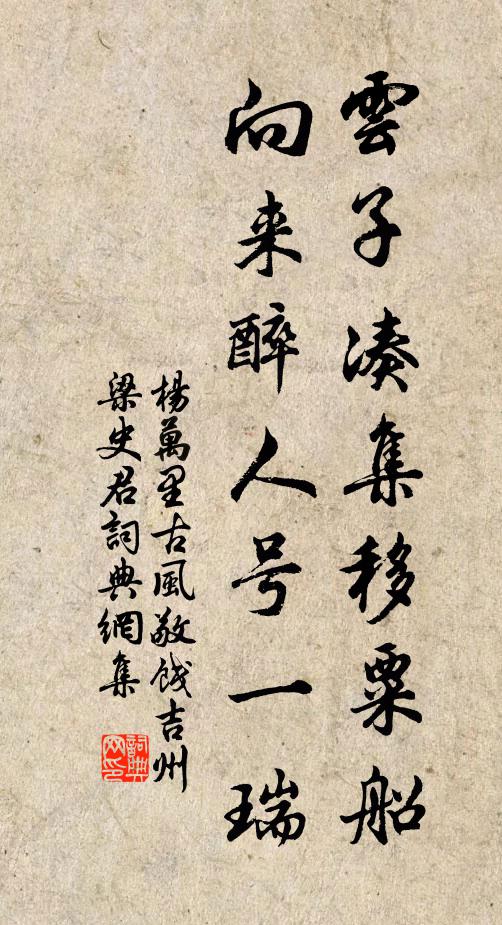 雲子凑集移粟船
向来醉人号一瑞
楊萬里古風敬餞吉州
梁史君詞典網集
詞典网印